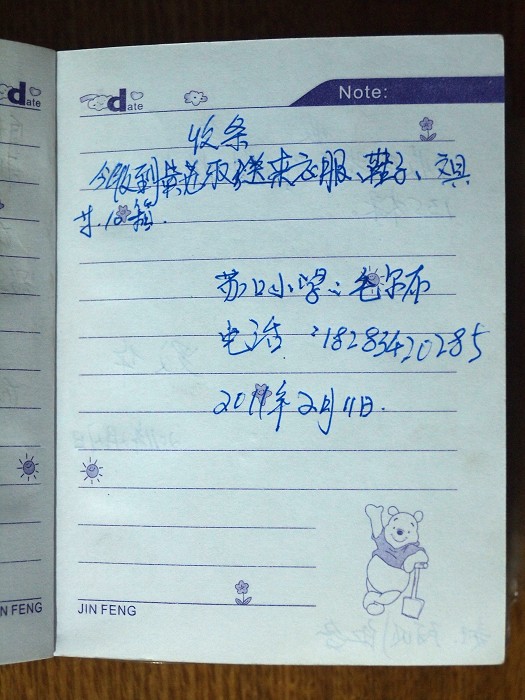 date
Note:
date
收条
今收到黄 送来衣服、鞋子、文具
共10箱.
苏口小学:毛尔布
电话:18283420285
2011年2月11日.
JIN FENG
N FENG